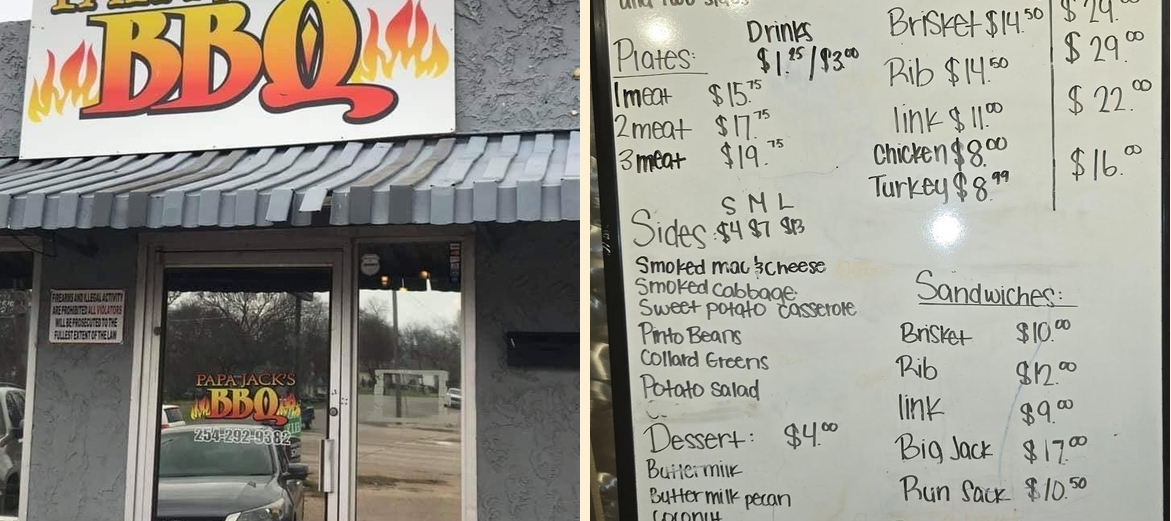 BBQ
FIREARMS AND ILLEGAL ACTIVITY
ARE PROHIBITED ALL VIOLATORS
WILL BE PROSECUTED TO THE
FULLEST EXTENT OF THE LAW
PAPA JACK'S
BBQ
254-292-9382
and two sides
Drinks
$1.25/$3.00
Plates:
1meat $15.75
2meat $17.75
3meat $19.75
S M L
Sides: $4 $7 $13
Smoked mac & cheese
Smoked cabbage
Sweet potato casserole
Pinto Beans
Collard Greens
Potato salad
Dessert: $4.00
Buttermilk
Buttermilk pecan
Coconut
Brisket $14.50 $29.00
Rib $14.50 $29.00
link $11.00 $22.00
Chicken $8.00 $16.00
Turkey $8.99
Sandwiches:
Brisket $10.00
Rib $12.00
link $9.00
Big Jack $17.00
Run Sack $10.50